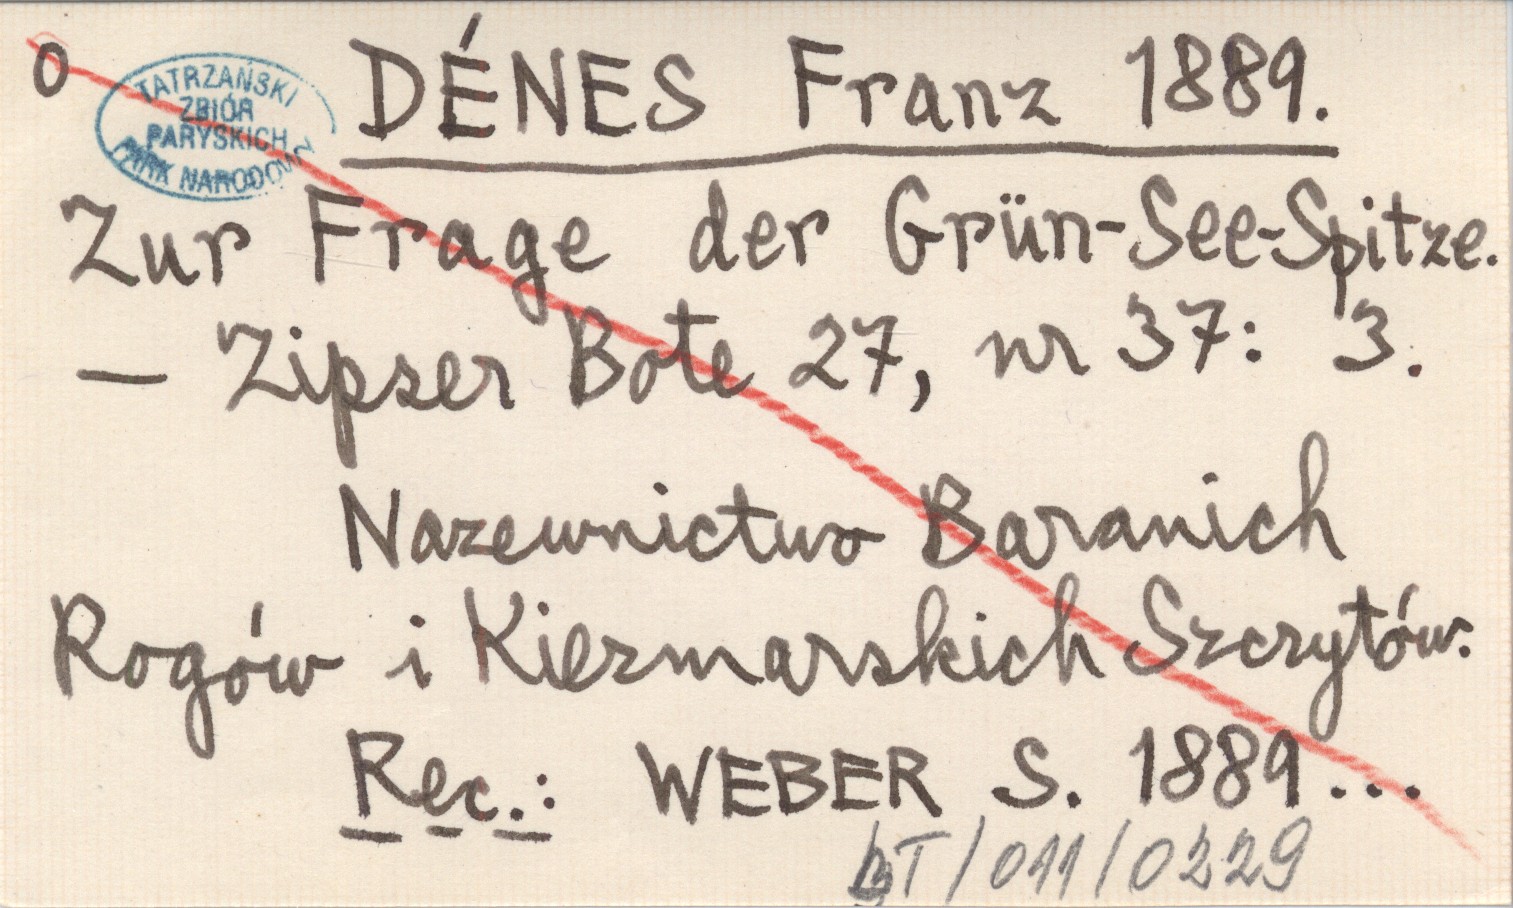 O
TATRZAŃSKI
ZBIÓR
PARYSKICH
PARK NARODOWY
DÉNES Franz 1889.
Zur Frage der Grün-See-Spitze.
— Zipser Bote 27, nr 37: 3.
Nazewnictwo Baranich
Rogów i Kiezmarskich Szczytów.
Rec.: WEBER S. 1889...
BT/011/0229